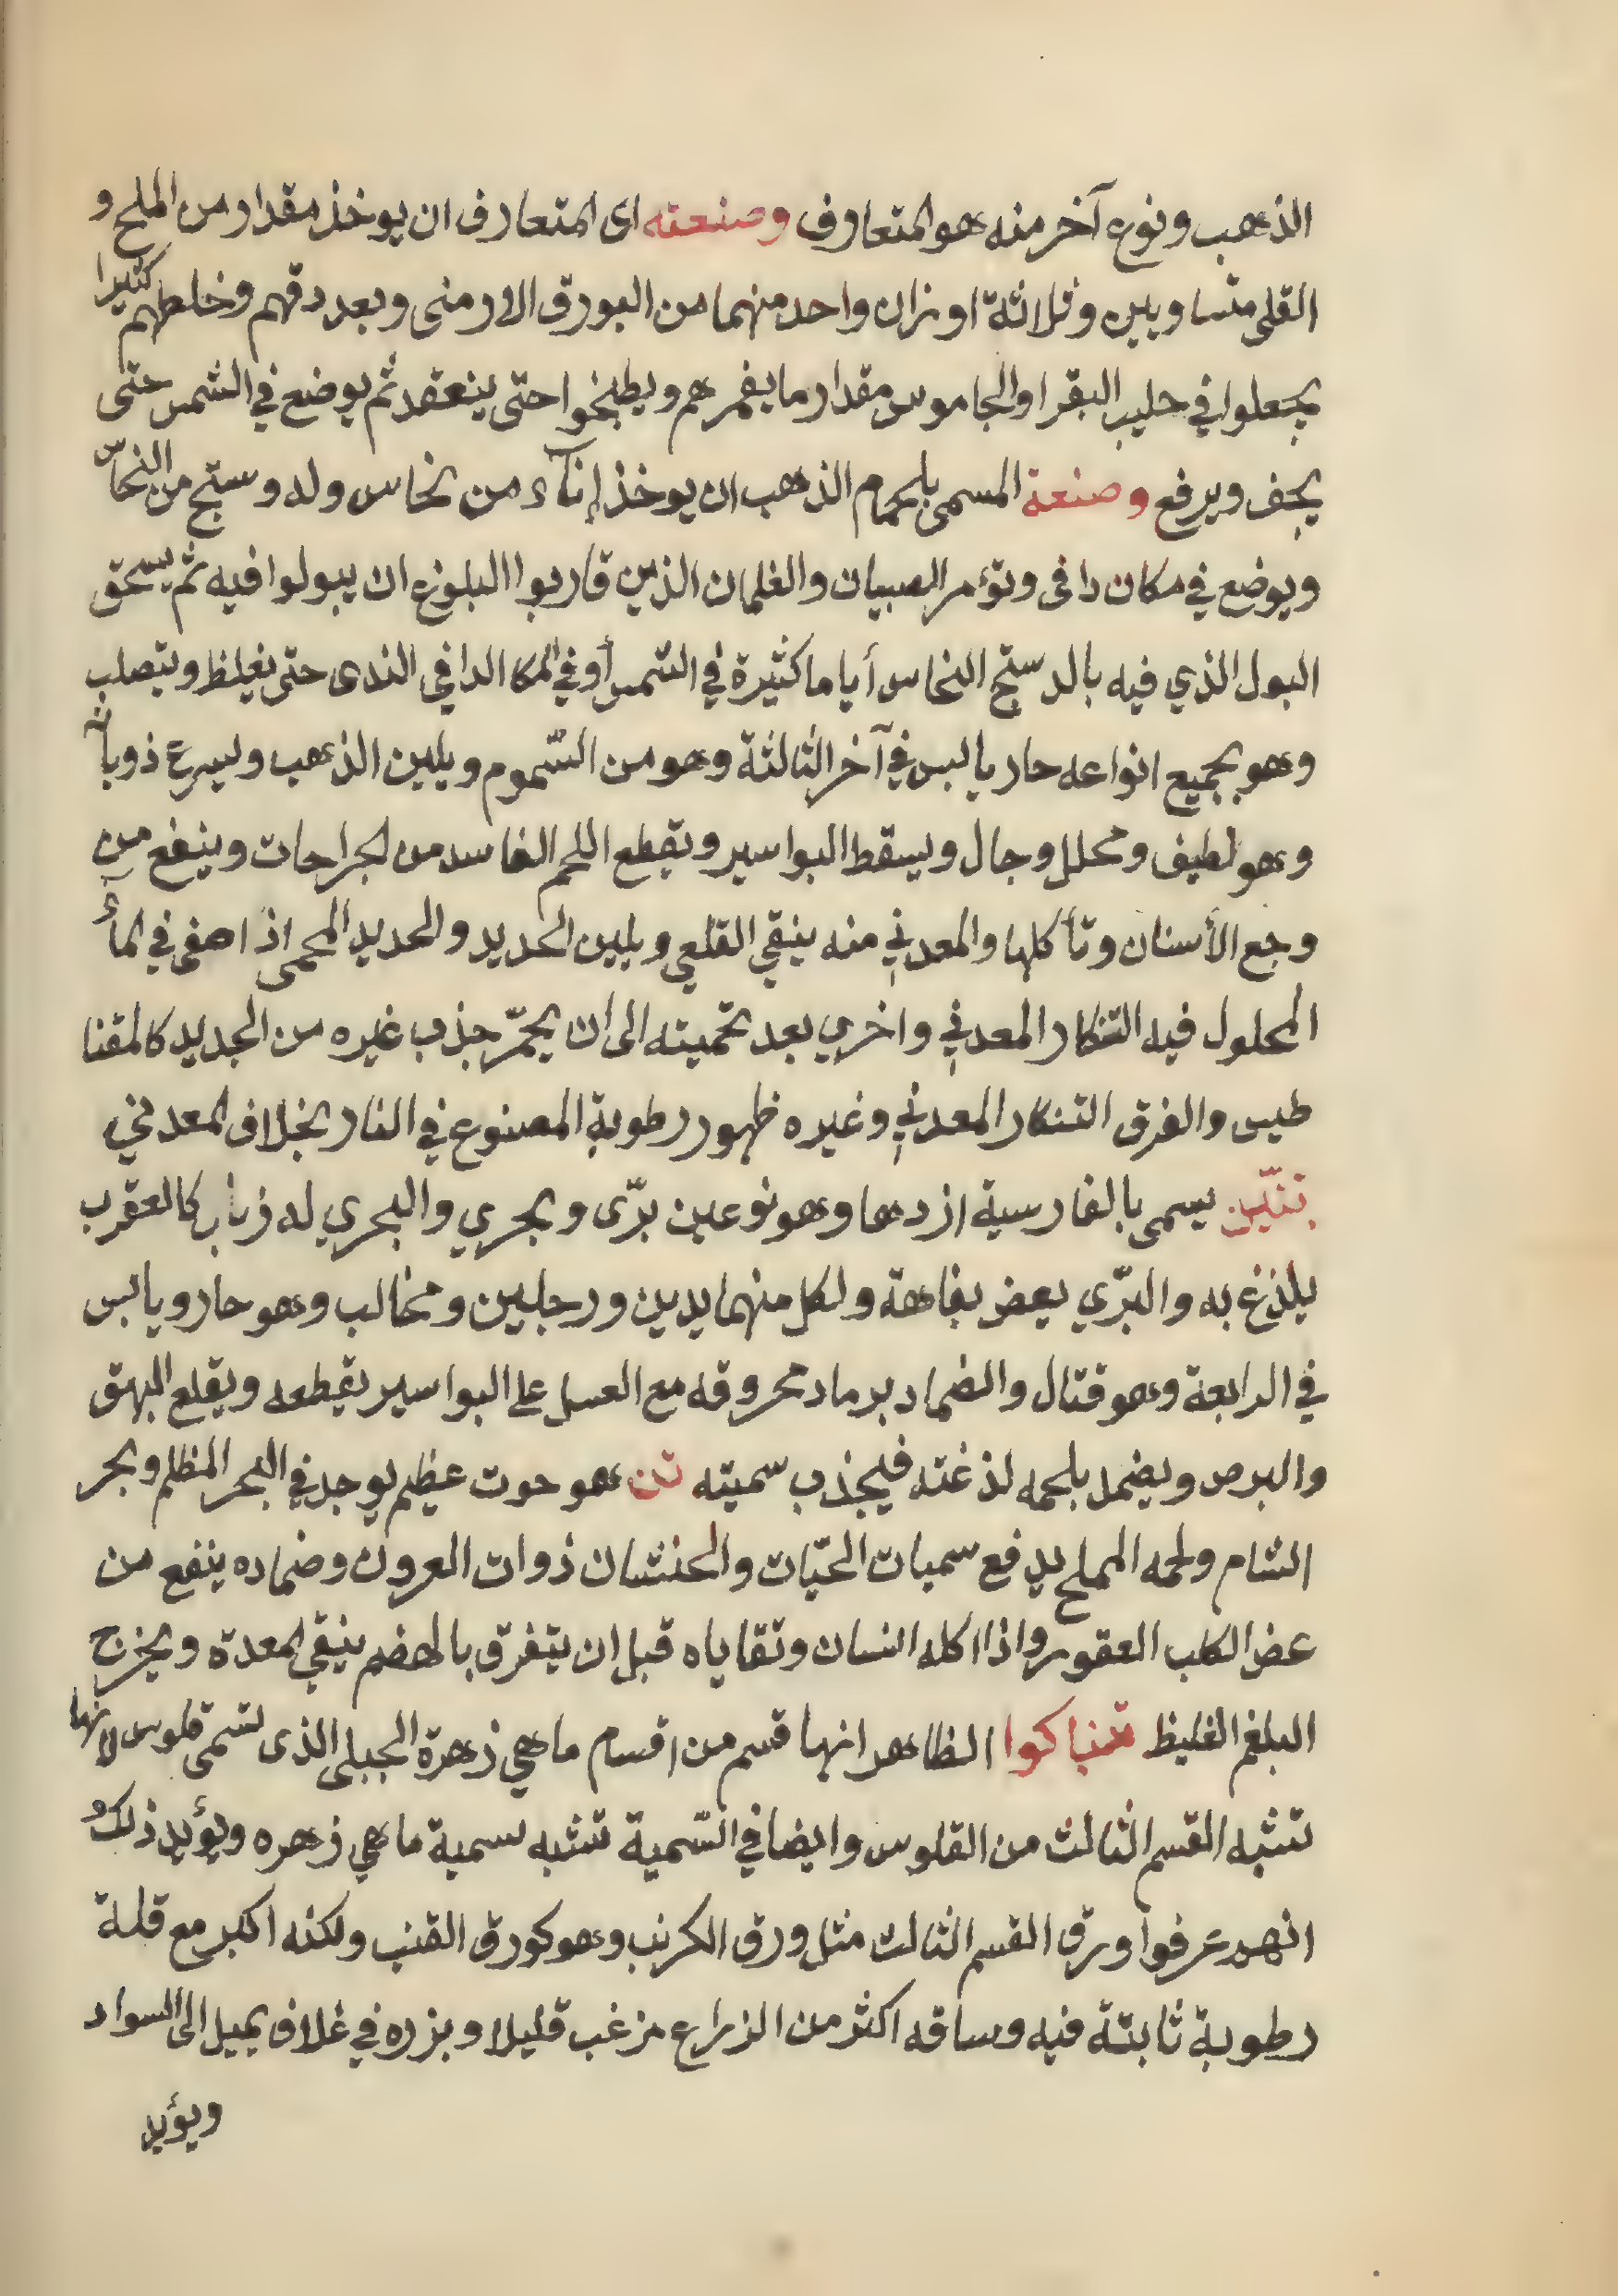 الذهب ونوع آخر منه هو المتعارف وصنعته اى المتعارف ان يوخذ مقدار من الملح و
القلى متساويين وثلاثة اوزان واحد منهما من البورق الارمنى وبعد دقهم وخلطهم كثيرا
يجعلوا في حليب البقر او الجاموس مقدار ما يغمرهم ويطبخوا حتى ينعقد ثم يوضع في الشمس حتى
يجف ويرفع وصنعة المسمى بلحام الذهب ان يوخذ إناء من نحاس وله دستج من النحاس
ويوضع في مكان دافى وتؤمر الصبيان والغلمان الذين قاربوا البلوغ ان يبولوا فيه ثم يسحق
البول الذي فيه بالدستج النحاس أياما كثيرة في الشمس أو في المكا الدافي الندى حتى يغلظ ويتصلب
وهو بجميع انواعه حار يابس في آخر الثالثة وهو من السّموم ويلين الذهب ويسرع ذوبانه
وهو لطيف ومحلل وجال ويسقط البواسير ويقطع اللحم الفاسد من لجراحات وينفع من
وجع الأسنان وتأكلها والمعدني منه ينقي القلعي ويلين الحديد والحديد المحمى اذا اطفى في لمأء
المحلول فيه التنكار المعدني واخري بعد تحميته الى ان يحمّر جذب غيره من الحديد كالمقنا
طيس والفرق التنكار المعدني وغيره ظهور رطوبة المصنوع في النار بخلاف لمعدني
تنّين يسمى بالفارسية ازدها وهو نوعين برّى وبحري والبحري له زناب كالعقرب
يلذغ به والبرّي يعض بفاهة ولكل منهما يدين ورجلين ومخالب وهو حار ويابس
في الرابعة وهو قتال والضماد برماد محروقه مع العسل على البواسير يقطعه ويقلع البهق
والبرص ويضمد بلحمه لذغته فيجذب سميته تن هو حوت عظيم يوجد في البحر المظلم وبحر
الشام ولحمه المملح يدفع سميات الحيّات والحنشان ذوات القرون وضماده ينفع من
عض الكلب العقور واذا اكله انسان وتقاياه قبل ان يتفرق بالهضم ينقي لمعدة ويخرج
البلغم الغليظ تنباكوا الظاهر انها قسم من اقسام ماهي زهرة الجبلى الذى تسمى قلوس لانها
تشبه القسم الثالث من القلوس وايضا في السّمية تشبه سمية ماهي زهره ويؤيد ذلك
انهم عرفوا ورق القسم الثالث مثل ورق الكرنب وهو كورق القنب ولكنه اكبر مع قلة
رطوبة ثابتة فيه وساقه اكثر من الزراع مزغب قليلا وبزره في غلاف يميل الى السواد
ويؤيد